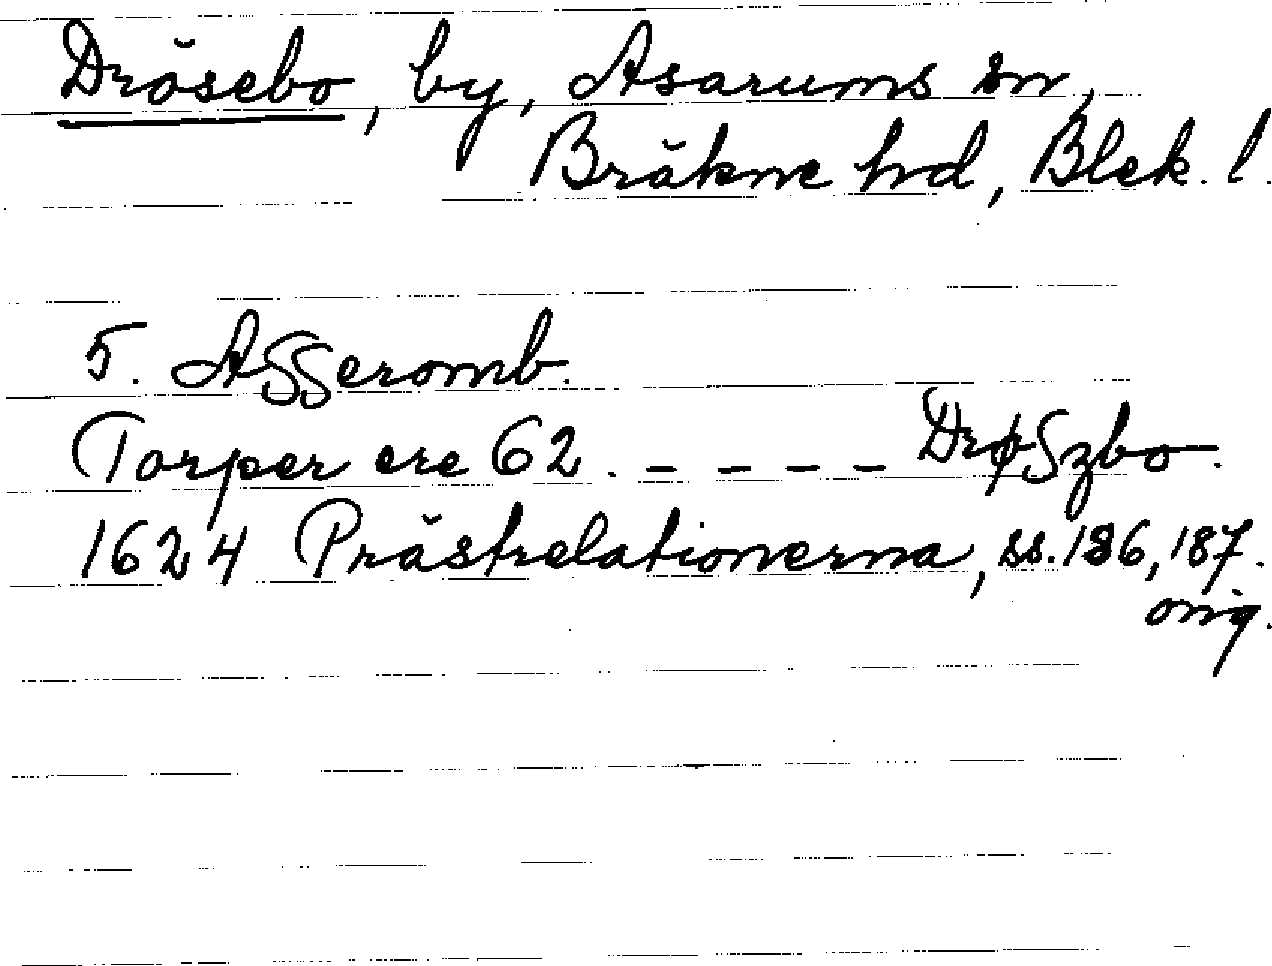 Drösebo, by, Asarums sn,
Bräkne hrd, Blek. l.
5. Asseromb.
Torper ere 62. _ _ _ _ Drøszbo.
1624 Prästrelationerna, ss. 186, 187.
orig.